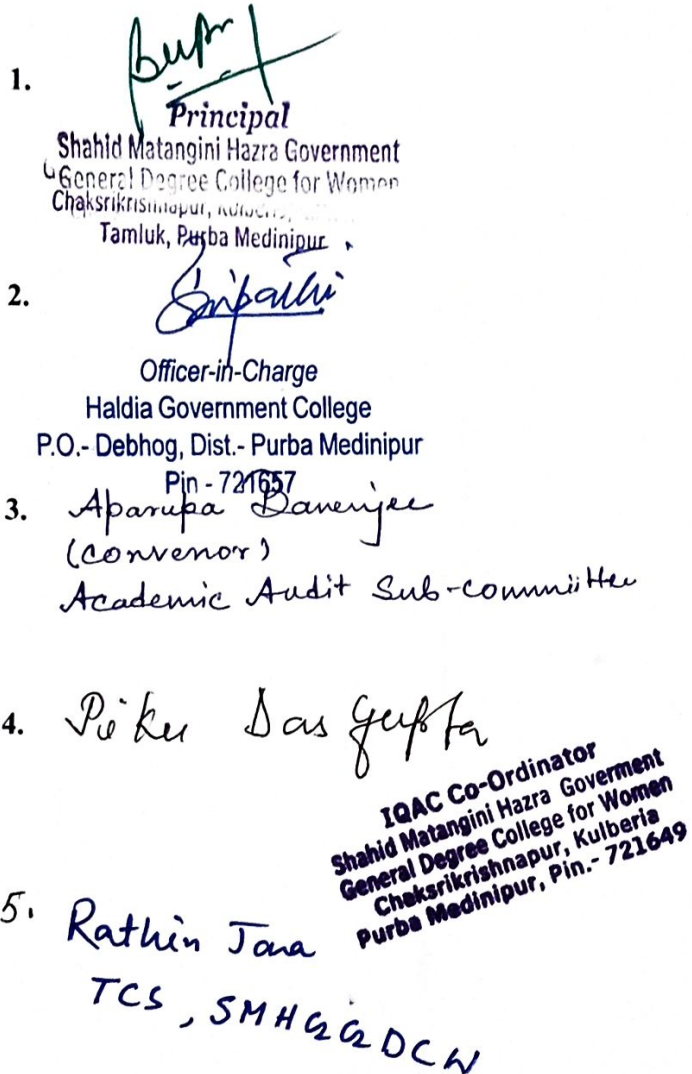 1.
Principal
Shahid Matangini Hazra Government
General Degree College for Women
Chaksrikrishnapur,
Tamluk, Purba Medinipur
2.
Officer-in-Charge
Haldia Government College
P.O.- Debhog, Dist.- Purba Medinipur
Pin - 721657
3. Aparupa Banerjee
(convenor)
Academic Audit Sub-committee
4. Pieku Das Gupta
IQAC Co-Ordinator
Shahid Matangini Hazra Goverment
General Degree College for Women
Chaksrikrishnapur, Kulberia
Purba Medinipur, Pin.- 721649
5. Rathin Jana
TCS, SMHGGDCW